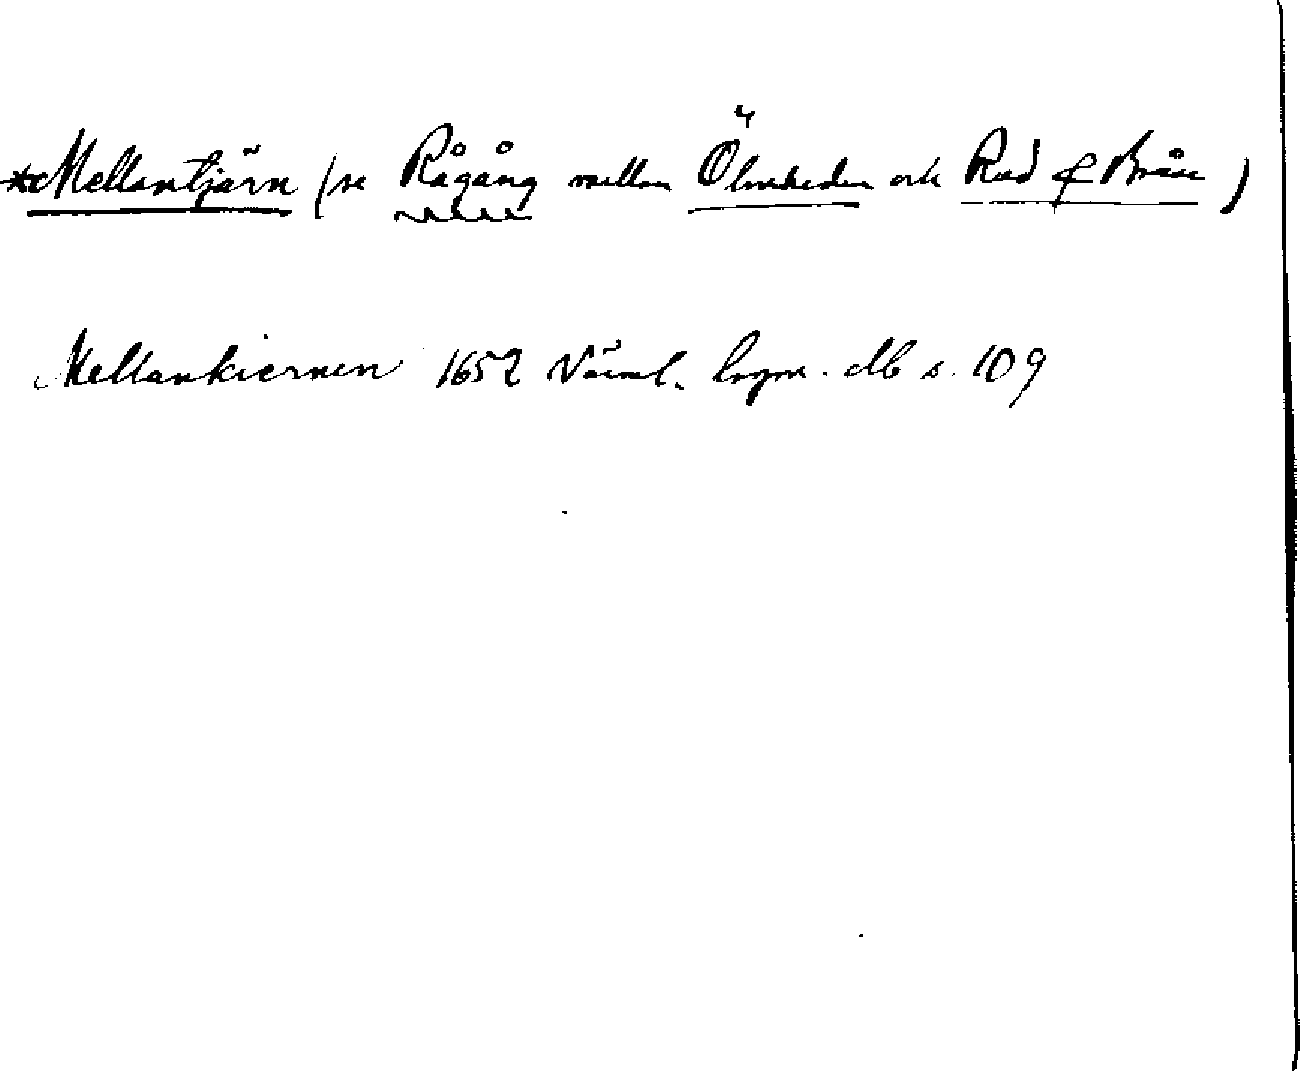 *Mellantjärn (se Rågång mellan Ölmheden och Rud f Bråne)
Mellankiernen 1652 Värml. lagm. db s. 109